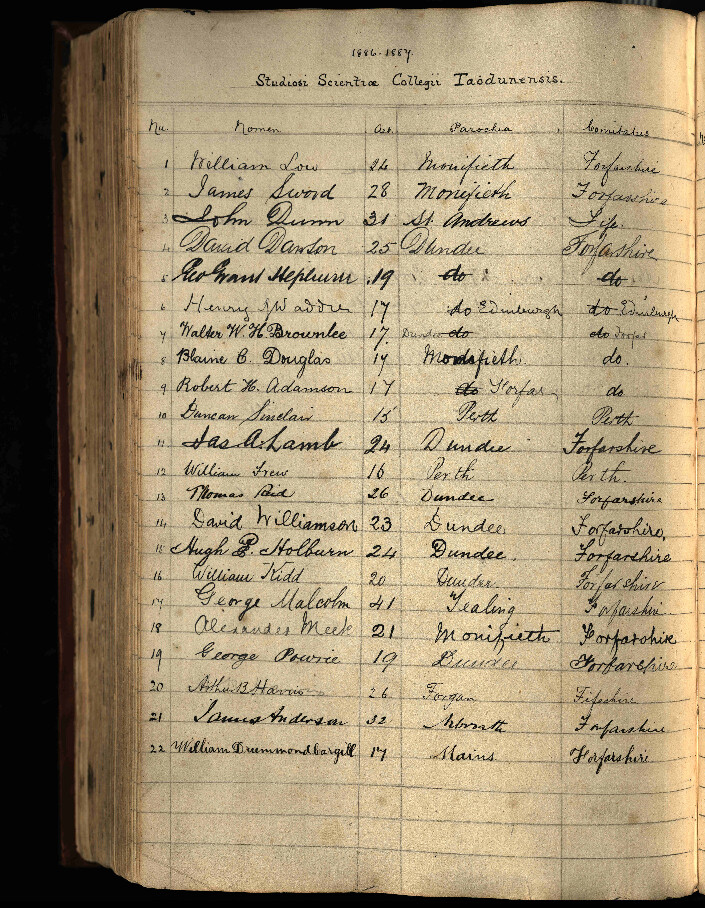 1886-1887.
Studiosi Scientiæ Collegii Taodunensis.
Nu. Nomen Aet. Parochia Comitatus
1 William Low 24 Monifieth Forfarshire
2 James Sword 28 Monifieth Forfarshire
3 John Dunn 31 St. Andrews Fife.
4 David Dawson 25 Dundee Forfarshire
5 Geo Grant Hepburn 19 do do
6 Henry Waddie 17 do Edinburgh do Edinburgh
7 Walter W. H. Brownlee 17. Dundee do do Forfar
8 Blaine C. Douglas 17 Monifieth. do.
9 Robert H. Adamson 17 do Forfar do
10 Duncan Sinclair 15 Perth Perth
11 Jas A. Lamb 24 Dundee Forfarshire
12 William Frew 16 Perth Perth.
13 Thomas Reid 26 Dundee Forfarshire
14 David Williamson 23 Dundee Forfarshire.
15 Hugh P. Holburn 24 Dundee. Forfarshire
16 William Kidd 20 Dundee Forfarshire
17 George Malcolm 41 Tealing Forfarshire
18 Alexander Meek 21 Monifieth Forfarshire
19 George Powrie 19 Dundee Forfarshire
20 Arthur B Harris 26 Forgan Fifeshire
21 James Anderson 32 Arbroath Forfarshire
22 William Drummond Cargill 17 Mains Forfarshire